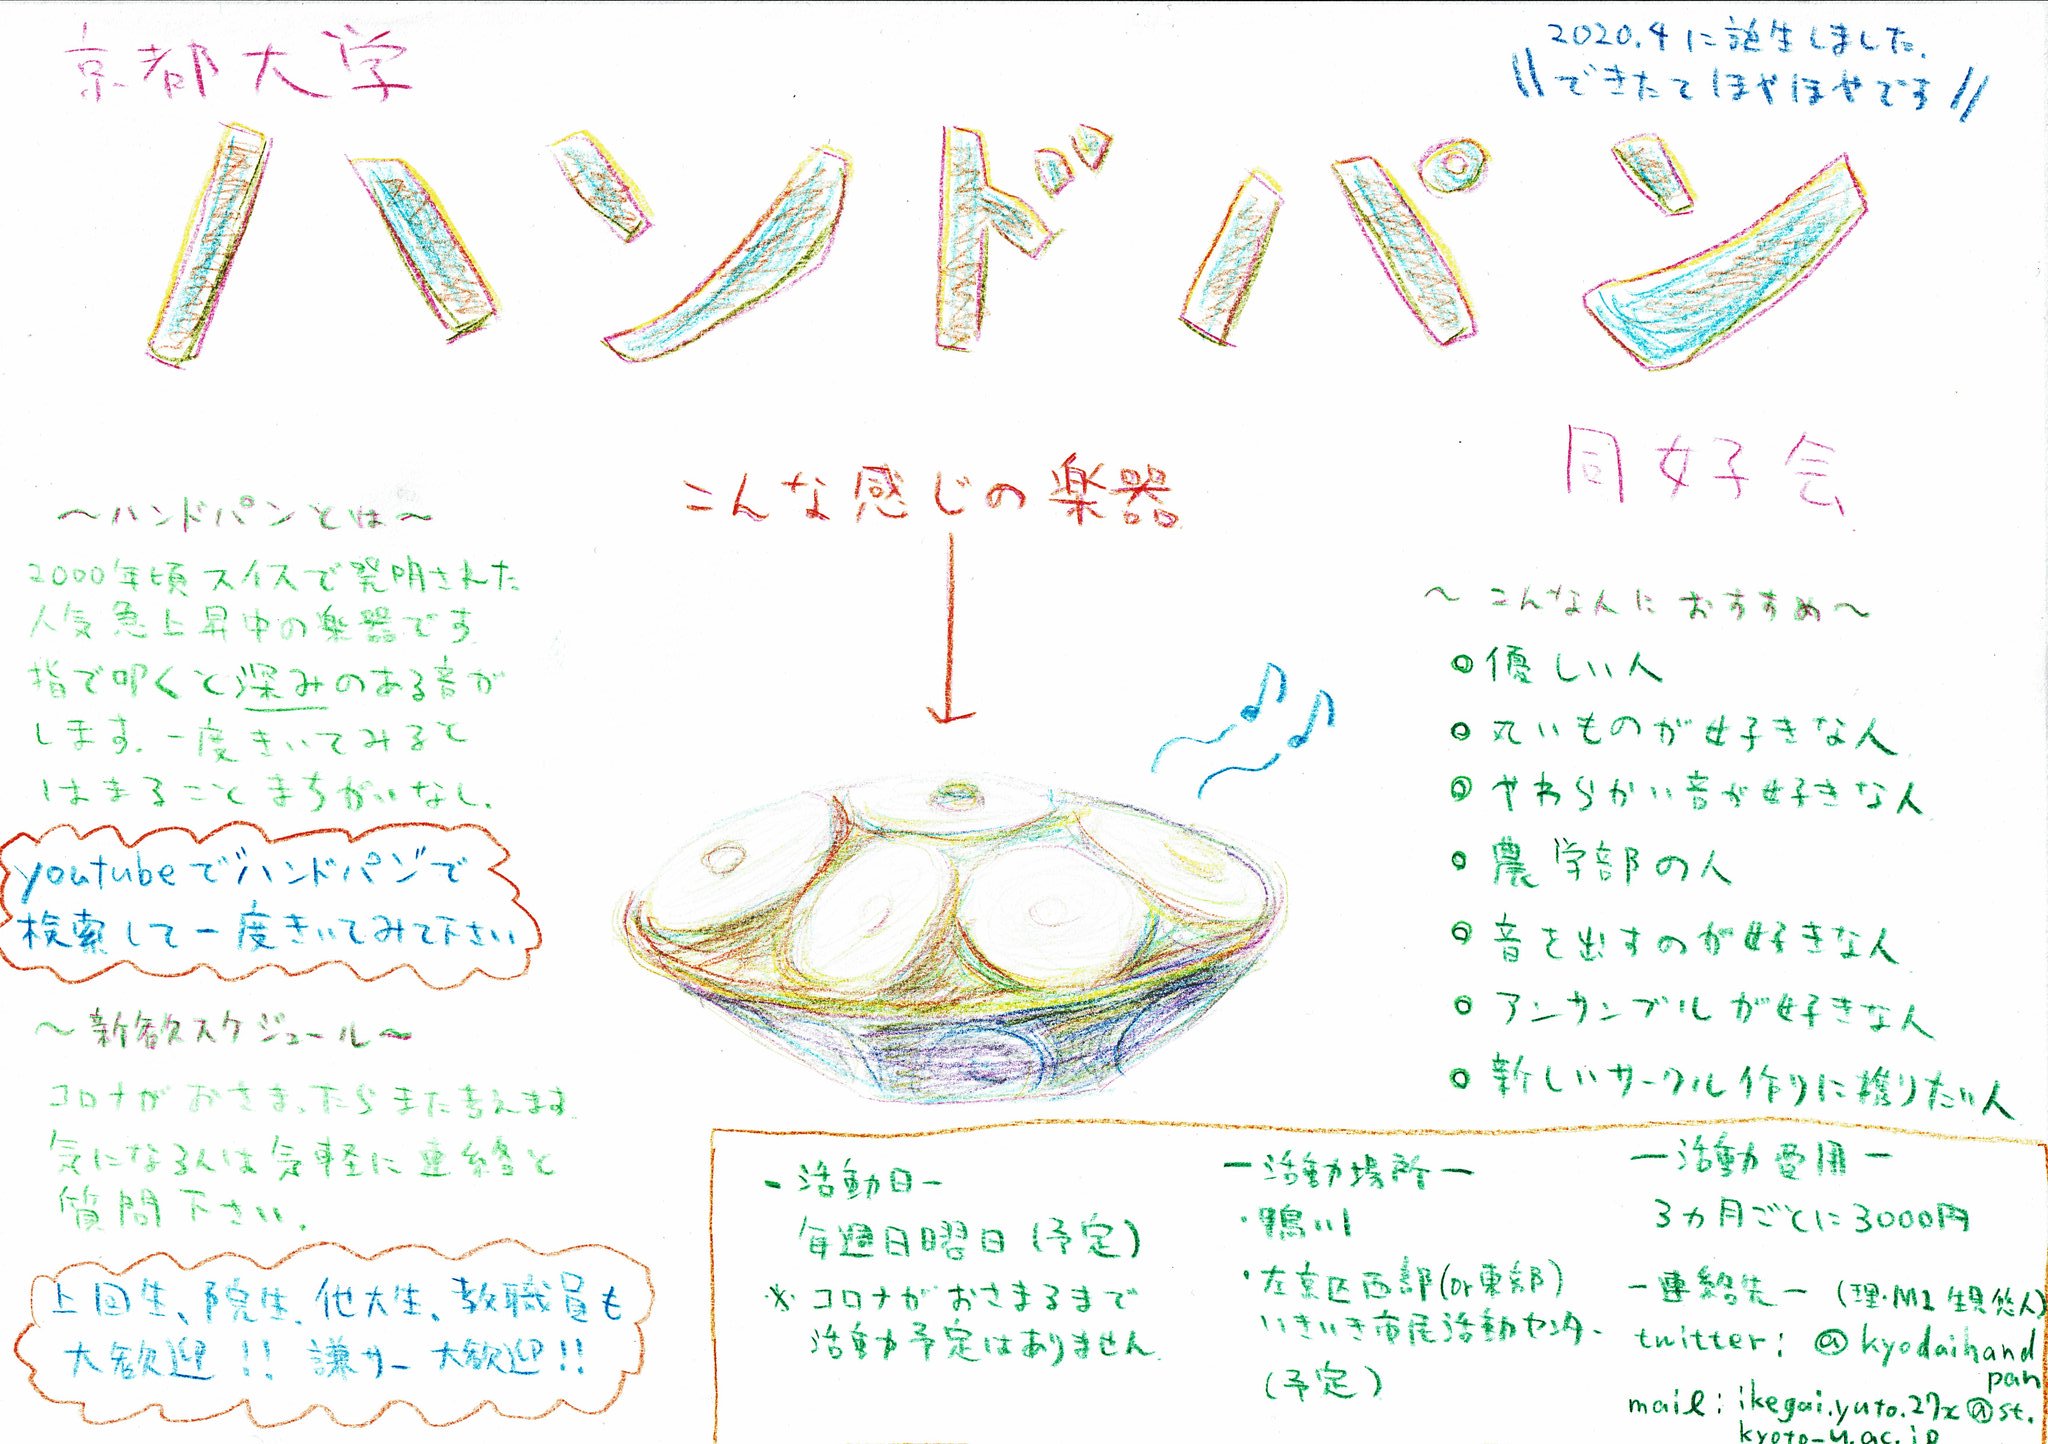 京都大学
2020.4に誕生しました。
\\できたてほやほやです//
ハンドパン
同好会
こんな感じの楽器
～ハンドパンとは～
2000年頃スイスで発明された
人気急上昇中の楽器です
指で叩くと深みのある音が
します。一度きいてみると
はまることまちがいなし。
youtubeで"ハンドパン"で
検索して一度きいてみて下さい
～新歓スケジュール～
コロナがおさまったらまた考えます。
気になる人は気軽に連絡と
質問下さい。
上回生、院生、他大生、教職員も
大歓迎!! 謙サー大歓迎!!
～こんな人におすすめ～
優しい人
丸いものが好きな人
やわらかい音が好きな人
農学部の人
音を出すのが好きな人
アンサンブルが好きな人
新しいサークル作りに携りたい人
－活動日－
毎週日曜日(予定)
※コロナがおさまるまで
活動予定はありません
－活動場所－
・鴨川
・左京区西部(or東部)
いきいき市民活動センター
(予定)
－活動費用－
3カ月ごとに3000円
－連絡先－ (理・M1
twitter: @kyodaihand
pan
mail: ikegai.yuto.27x@st.
kyoto-u.ac.jp